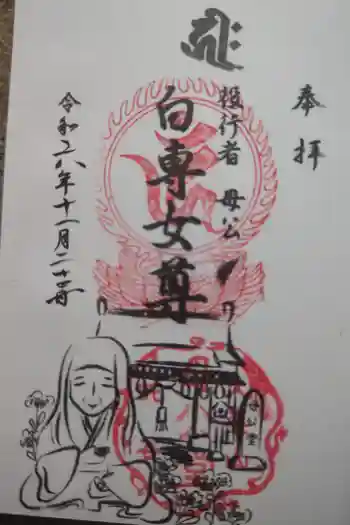 奉拝
役行者 母公
白専女尊
令和六年十一月二十二日
母公堂